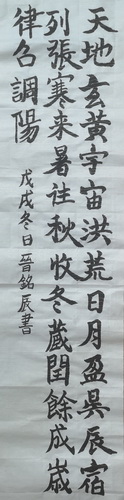 天地玄黃宇宙洪荒日月盈昃辰宿
列張寒来暑往秋收冬藏閏餘成歲
律召調陽
戊戌冬日晉銘辰書